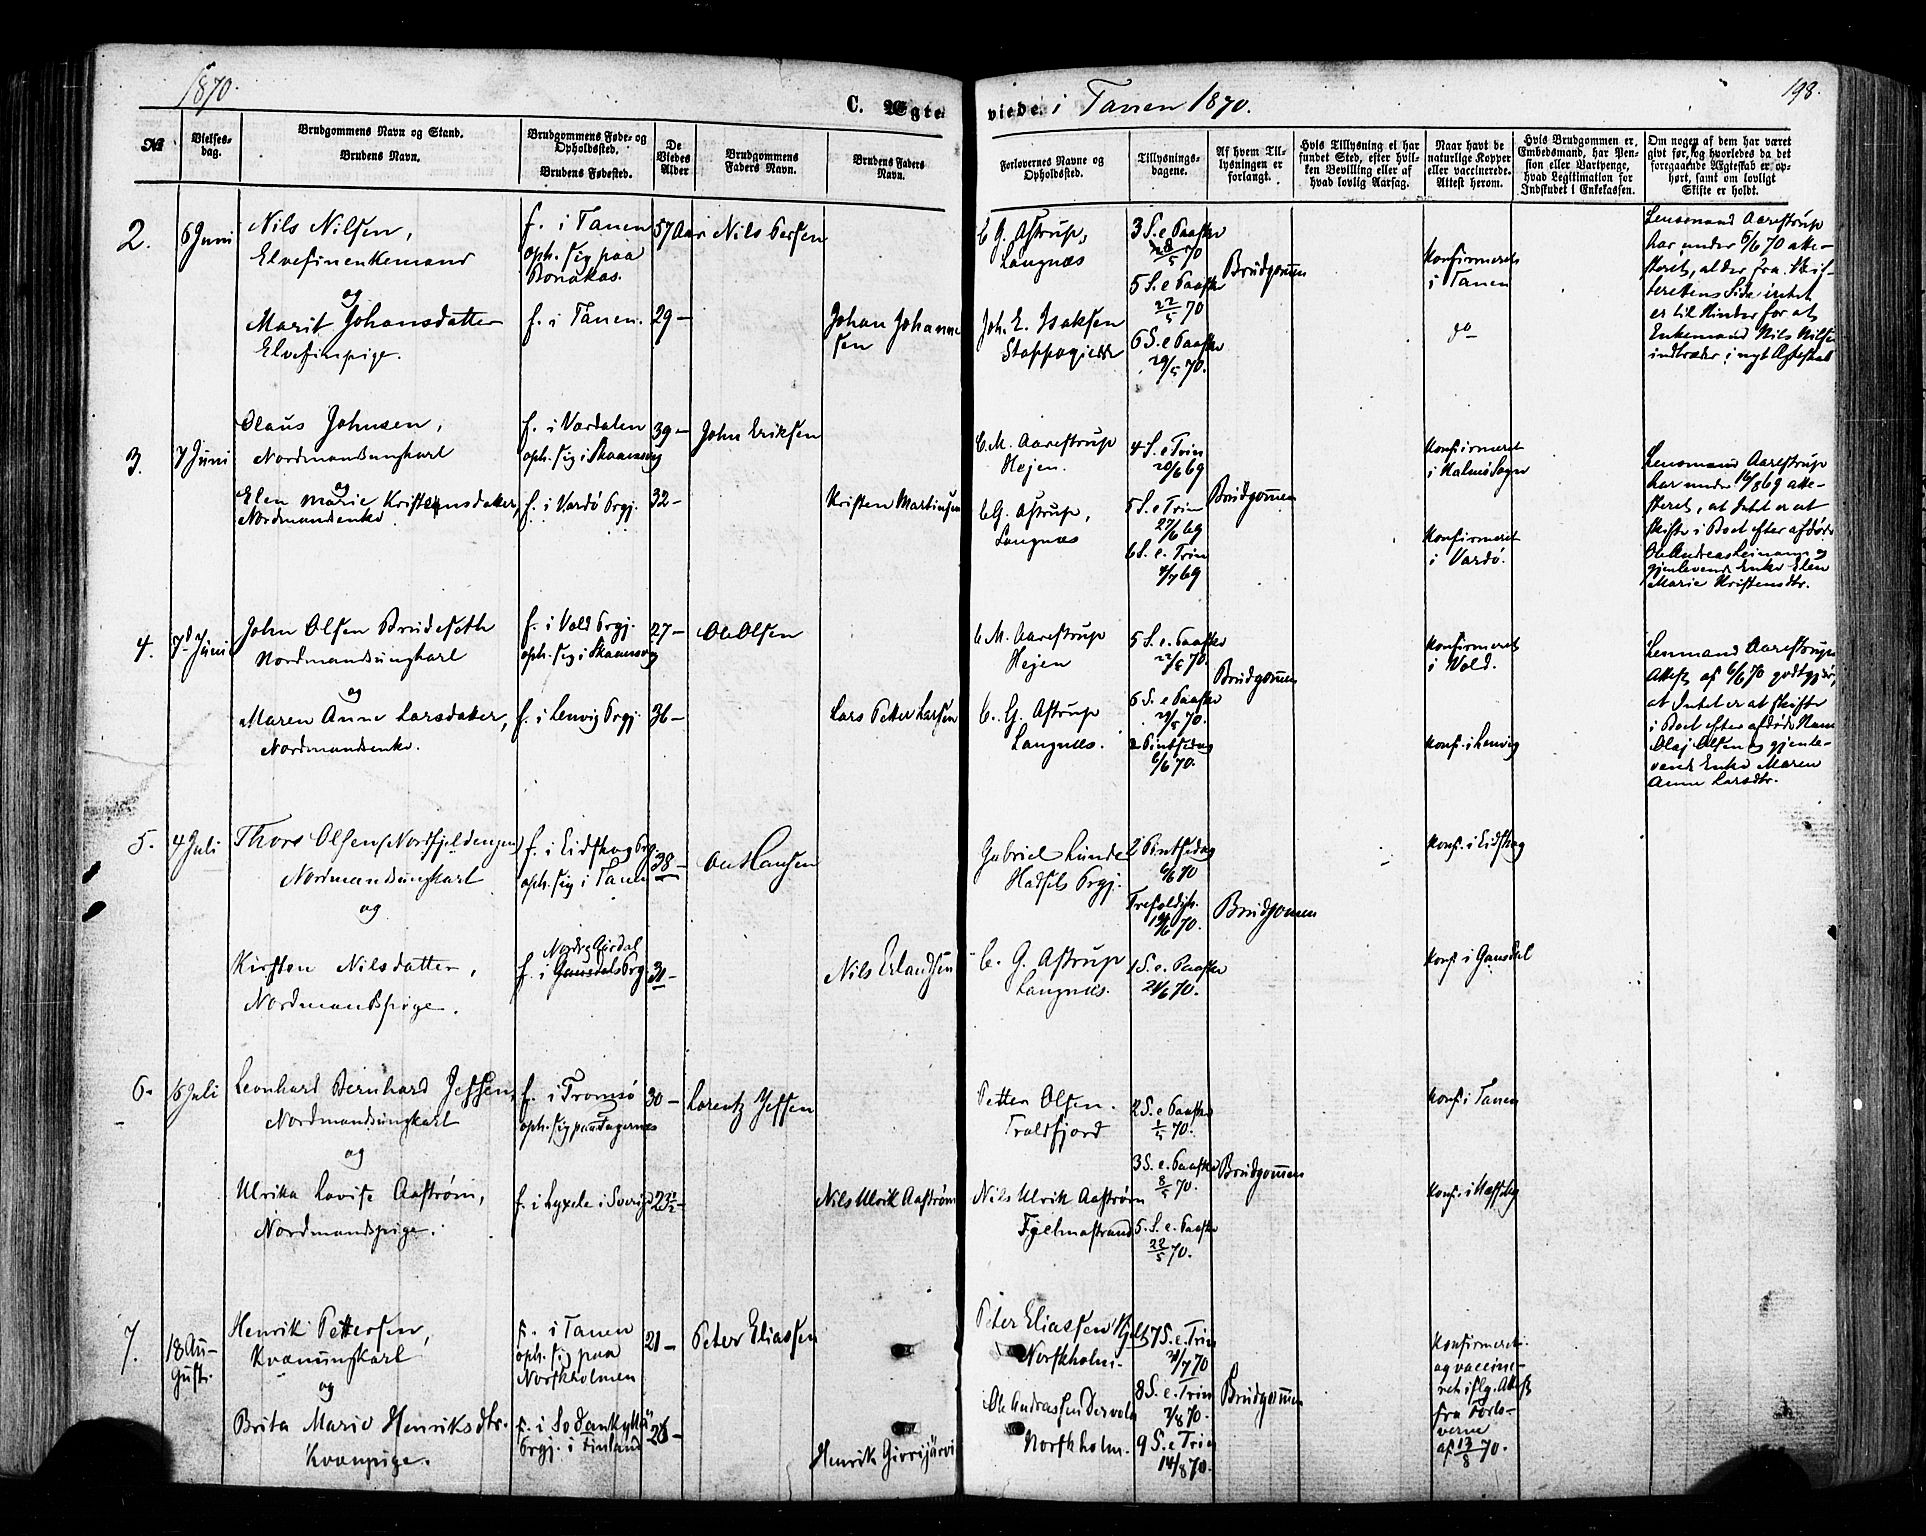 1870.
C. Ægte
viede i Tanen 1870.
198.
No
Vielses-
dag.
Brudgommens Navn og Stand.
Brudens Navn.
Brudgommens Føde- og
Opholdssted.
Brudens Fødested.
De
Viedes
Alder
Brudgommens
Faders Navn.
Brudens Faders
Navn.
Forlovernes Navne og
Opholdssted.
Tillysnings-
dagene.
Af hvem Til-
lysningen er
forlangt.
Hvis Tillysning ei har
fundet Sted, efter hvil-
ken Bevilling eller af
hvad lovlig Aarsag.
Naar havt de
naturlige Kopper
eller vaccinerede.
Attest herom.
Hvis Brudgommen er
Embedsmand, har Pen-
sion eller Vartpenge,
hvad Legitimation for
Indskudet i Enkekassen.
Om nogen af dem har været
givt før, og hvorledes da det
foregaaende Ægteskab er op-
hørt, samt om lovligt
Skifte er holdt.
2.
6 Juni
Nils Nilsen,
Elvefinenkemand
og
Marit Johansdatter
Elvefinpige.
f. i Tanen
oph. sig paa
Bonakas.
f. i Tanen.
57 Aar
29 –
Nils Persen
Johan Johanne
sen
C. G. Astrup,
Langnæs
Joh. E. Isaksen
Stappogiedde
3 S. e Paaske
8/5 70
5 S. e Paaske
22/5 70
6 S. e Paaske
29/5 70.
Brudgommen
Konfirmeret
i Tanen
do
Lensmand Aarestrup
har under 6/6 70 atte-
steret, at der fra Skif-
terettens Side intet
er til Hinder for at
Enkemand Nils Nilsen
indtræder i nyt Ægteskab
3.
7 Juni
Olaus Johnsen,
Nordmandsungkarl
og
Elen Marie Kristensdatter,
Nordmandsenke
f. i Værdalen
oph. sig i Skaansvig
f. i Vardö Prgj.
39 –
32 –
John Eriksen
Kristen Martinsen
C. M. Aarestrup
Hejen.
C. G. Astrup,
Langnæs
4 S. e Trin
20/6 69
5 S. e Trin
27/6 69
6 S. e. Trin
4/7 69
Brudgommen
Konfirmeret
i Malmö Sogn
Konfirmeret
i Vardö.
Lensmand Aarestrup
har under 16/8 69 atte-
steret, at Intet er at
skifte i Boet efter afdøde
Ole Andreas Leinam og
gjenlevende Enke Elen
Marie Kristensdtr.
4.
7d Juni
John Olsen Brudeseth
Nordmandsungkarl
og
Maren Anne Larsdatter,
Nordmandsenke.
f. i Vold Prgj.
oph. sig i Skaansvig
f. i Lenvig Prgj.
27 –
36 –
Ole Olsen
Lars Petter Larsen
C. M. Aarestrup
Hejen
C. G. Astrup
Langnæs.
5 S. e. Paaske
22/5 70.
6 S. e Paaske
29/5 70.
2 Pintsedag
6/6 70.
Brudgommen
Konfirmeret
i Vold.
Konf. i Lenvig
Lensmand Aarestrups
Attest af 6/6 70 godtgjør,
at Intet er at skifte
i Boet efter afdøde Mand
Olaj Olsen og gjenle-
vende Enke Maren
Anne Larsdtr.
5.
4 Juli
Thore Olsen (Nordfjeldengen)
Nordmandsungkarl
og
Kirsten Nilsdatter,
Nordmandspige.
f. i Eidskog Prg.
oph. sig i Tanen
Nordre Guldal
f. i Gausdals Prg
38 –
31 –
Ole Hansen
Nils Erlandsen
Gabriel Lunde
Hadsels Prgj.
C. G. Astrup
Langnæs.
2 Pintsedag
6/6 70
Trefoldigh.
12/6 70.
1 S. e. Paaske
24/6 70.
Brudgommen
Konf. i Eidskog
Konf i Gausdal
6.
6 Juli
Leonhard Bernhard Jessen,
Nordmandsungkarl
og
Ulrika Lovise Aastrøm,
Nordmandspige.
f. i Tromsö
oph. sig paa Tagernes
f. i Lyxele i Sverig
30 –
23½ –
Lorentz Jessen
Nils Ulrik Aastrøm
Petter Olsen.
Troldfjord
Nils Ulrik Aastrøm
Fjelmastrand
2 S. e Paaske
1/5 70.
3 S. e. Paaske
8/5 70.
5. S. e. Paaske
22/5 70.
Brudgommen
Konf i Tanen
Konf. i Næsseby
7.
18 Au-
gust.
Henrik Pettersen,
Kvænungkarl
og
Brita Marie Henriksdtr.
Kvænpige.
f. i Tanen
oph. sig paa
Norskholmen
f. i Sodankylä
Prgj. i Finland
21 –
26 –
Peter Eliassen
Henrik Girrijärvi
Peter Eliassen
Norskholm.
Ole Andrassen Dervola
Norskholm.
7 S. e. Trin
31/7 70
8 S. e. Trin
7/8 70.
9 S. e Trin
14/8 70.
Brudgommen
Konfirmeret
og vaccine-
ret iflg. Attest
fra Forlo-
verne
af 13/8 70.